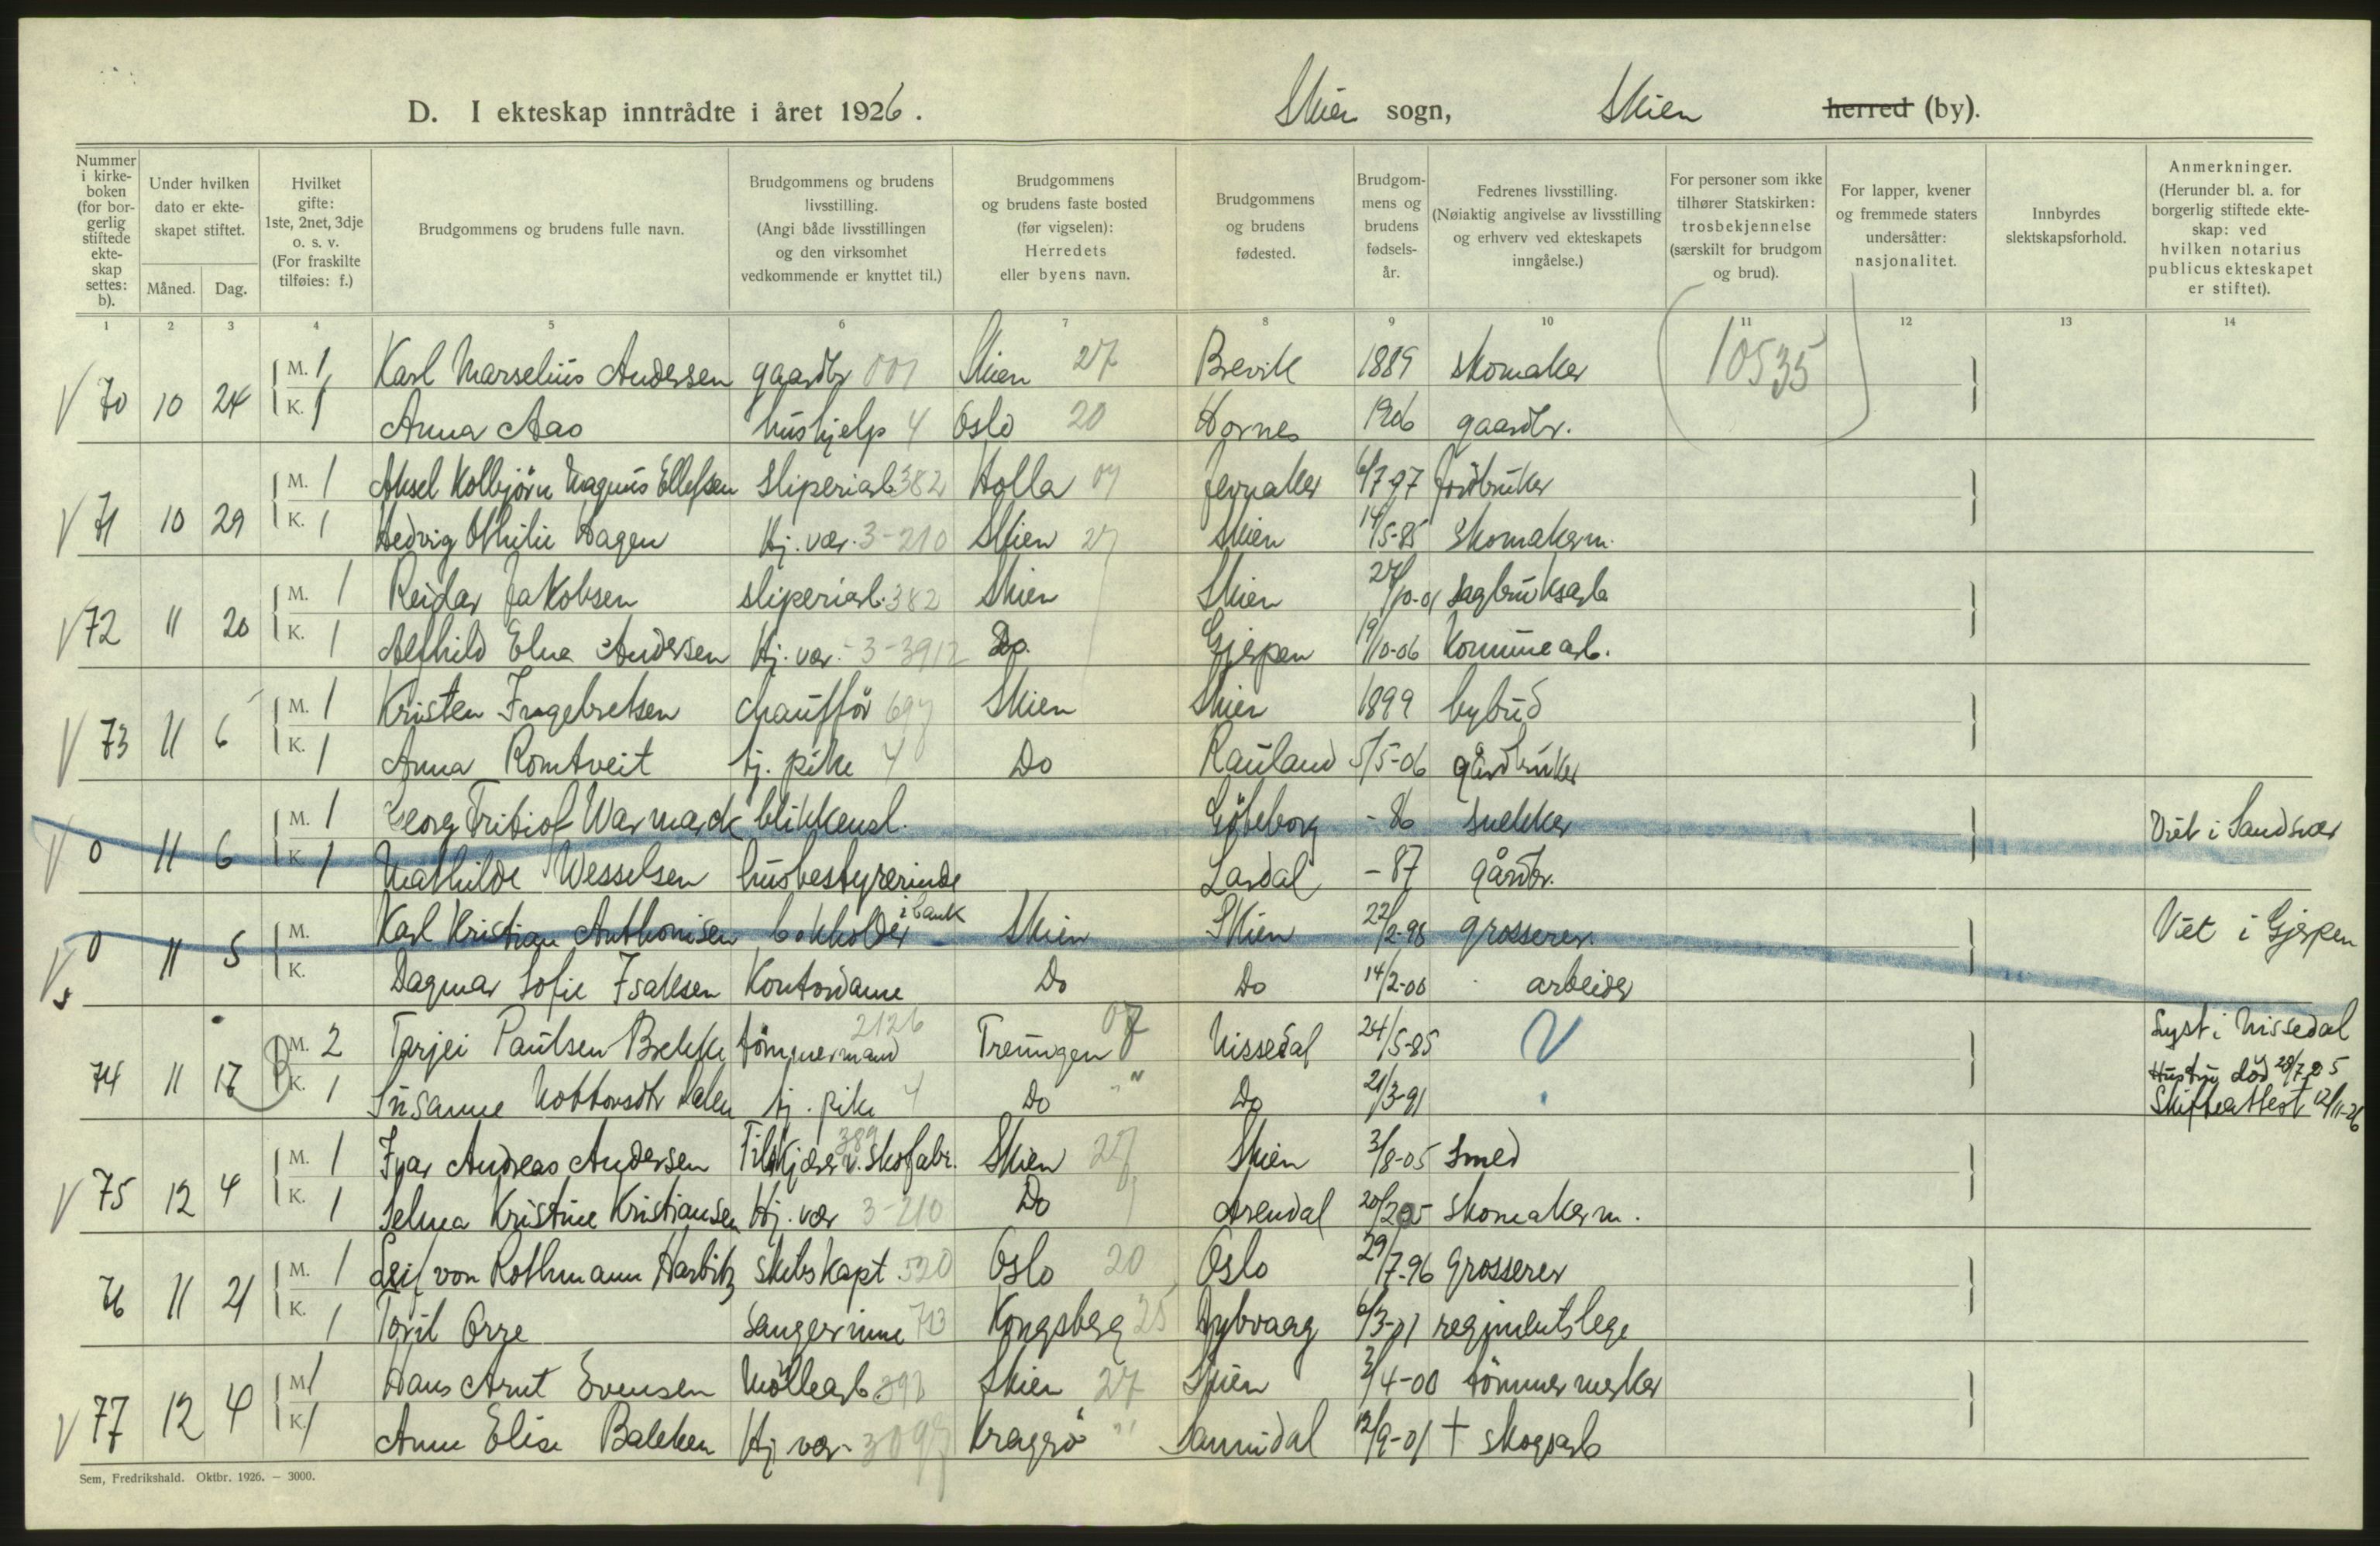 D. I ekteskap inntrådte i året 1926.
Skien sogn, Skien herred (by).
Nummer i kirkeboken (for borgerlig stiftede ekteskap settes: b).
Under hvilken dato er ekteskapet stiftet.
Måned. Dag.
Hvilket gifte: 1ste, 2net, 3dje o. s. v. (For fraskilte tilføies: f.)
Brudgommens og brudens fulle navn.
Brudgommens og brudens livsstilling. (Angi både livsstillingen og den virksomhet vedkommende er knyttet til.)
Brudgommens og brudens faste bosted (før vigselen): Herredets eller byens navn.
Brudgommens og brudens fødested.
Brudgommens og brudens fødselsår.
Fedrenes livsstilling. (Nøiaktig angivelse av livsstilling og erhverv ved ekteskapets inngåelse.)
For personer som ikke tilhører Statskirken: trosbekjennelse (særskilt for brudgom og brud).
For lapper, kvener og fremmede staters undersåtter: nasjonalitet.
Innbyrdes slektskapsforhold.
Anmerkninger. (Herunder bl. a. for borgerlig stiftede ekteskap: ved hvilken notarius publicus ekteskapet er stiftet).
1 2 3 4 5 6 7 8 9 10 11 12 13 14
V 70 10 24 M. 1 Karl Marselius Andersen gaardbr 001 Skien 27 Brevik 1889 skomaker (10535)
K. 1 Anna Aas hushjelp 4 Oslo 20 Hornes 1906 gaardbr.
V 71 10 29 M. 1 Aksel Kolbjörn Magnus Ellefsen Sliperiarb. 382 Holla 07 Jevnaker 6/7 97 Jordbruker
K. 1 Hedvig Othilie Hagen Hj. vær. 3-210 Skien 27 Skien 14/5-85 Skomakerm.
V 72 11 20 M. 1 Reidar Jakobsen sliperiarb. 382 Skien Skien 27/10-01 sagbruksarb
K. 1 Alfhild Elna Andersen Hj. vær. - 3-3912 Do. Gjerpen 19/10-06 Kommunearb.
V 73 11 6 M. 1 Kristen Ingebretsen chaufför 697 Skien Skien 1899 bybud
K. 1 Anna Romtveit tj. pike 4 Do Rauland 5/5-06 gårdbruker
V 0 11 6 M. 1 Georg Fritiof Warmark blikkensl. Göteborg - 86 snekker Viet i Sandsvær
K. 1 Mathilde Wesselsen husbestyrerinde Lardal - 87 gårdbr.
V 0 11 5 M. Karl Kristian Anthonisen bokholder i bank Skien Skien 22/2-98 grosserer. Viet i Gjerpen
K. Dagmar Sofie Isaksen Kontordame Do Do 14/2-00 arbeider
74 11 17 M. 2 Tarjei Paulsen Brekke tömmermand 2126 Treungen 07 Nissedal 24/5-85 Lyst i Nissedal
K. 1 Susanne tj. pike 4 Do " Do 21/3-91 Hustru död 28/7 25 Skifteattest 12/11-26
V 75 12 4 M. 1 Ivar Andreas Andersen Tilskjærer v. skofabr. 389 Skien 27 Skien 3/8-05 Smed
K. 1 Selma Kristine Kristiansen Hj. vær 3-210 Do Arendal 20/2 05 skomakerm.
76 11 21 M. 1 Leif von Rothmann Harbitz skibskapt 520 Oslo 20 Oslo 29/7-96 Grosserer
K. 1 Toril Orre Sangerinne 713 Kongsberg 25 Dybvaag 6/3-01 regimentslege
V 77 12 4 M. 1 Hans Arnt Evensen Möllearb 392 Skien 27 Skien 3/4-00 tömmermerker
K. 1 Anne Elise Bakken Hj vær - 3097 Kragerö " Sannidal 12/9-01 + skogsarb
Sem, Fredrikshald. Oktbr. 1926. — 3000.